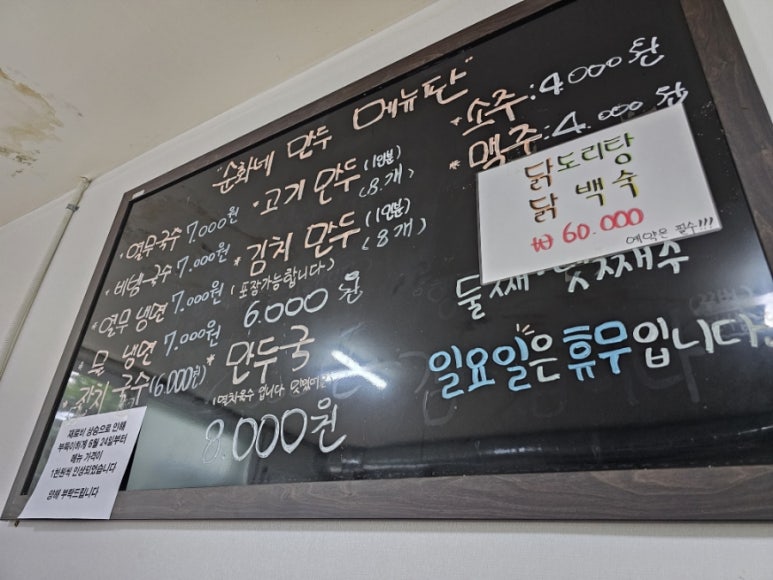 "순화네 만두 메뉴판"
* 열무국수 7.000원
* 비빔국수 7.000원
* 열무 냉면 7.000원
* 물 냉면 7.000원
* 잔치 국수 (6.000원)
* 고기 만두 (1인분) (8.개)
* 김치 만두 (1인분) (8개)
(포장가능합니다)
6.000원
* 만두국
8.000원
* 소주:4000원
* 맥주:4.000원
닭도리탕
닭 백숙
₩ 60.000
예약은 필수!!!
둘째.넷째주
일요일은 휴무입니다
재료비 상승으로 인해
부득이하게 6월 24일부터
메뉴 가격이
1천원씩 인상되었습니다
양해 부탁드립니다